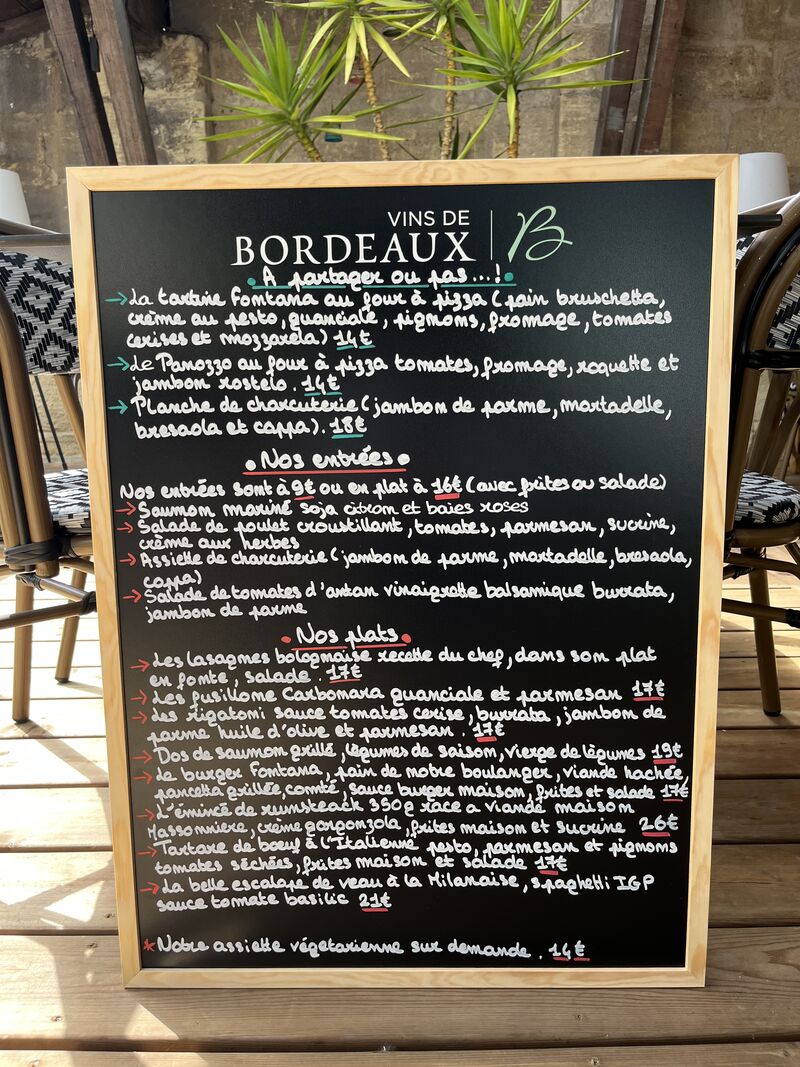 VINS DE
BORDEAUX B
A partager ou pas...!
→ La tartine Fontana au four à pizza (pain bruschetta,
crème au pesto, guanciale, pignons, fromage, tomates
cerises et mozzarela) 14€
→ Le Panozzo au four à pizza tomates, fromage, roquette et
jambon rostelo. 14€
→ Planche de charcuterie (jambon de parme, mortadelle,
bresaola et coppa). 18€
Nos entrées
Nos entrées sont à 9€ ou en plat à 16€ (avec frites ou salade)
→ Saumon mariné soja citron et baies roses
→ Salade de poulet croustillant, tomates, parmesan, sucrine,
crème aux herbes
→ Assiette de charcuterie (jambon de parme, mortadelle, bresaola,
coppa)
→ Salade de tomates d'antan vinaigrette balsamique burrata,
jambon de parme
Nos plats
→ Les lasagnes bolognaise recette du chef, dans son plat
en fonte, salade. 17€
→ Les fusillone Carbonara guanciale et parmesan 17€
→ Les rigatoni sauce tomates cerise, burrata, jambon de
parme huile d'olive et parmesan. 17€
→ Dos de saumon grillé, légumes de saison, vierge de légumes 19€
→ Le burger Fontana, pain de notre boulanger, viande hachée,
pancetta grillée, comté, sauce burger maison, frites et salade 17€
→ L'émincé de rumsteack 350g race a viande maison
Massonniere, crème gorgonzola, frites maison et sucrine 26€
→ Tartare de bœuf à l'Italienne pesto, parmesan et pignons
tomates séchées, frites maison et salade 17€
→ La belle escalope de veau à la Milanaise, spaghetti IGP
sauce tomate basilic 21€
* Notre assiette végetarienne sur demande. 14€